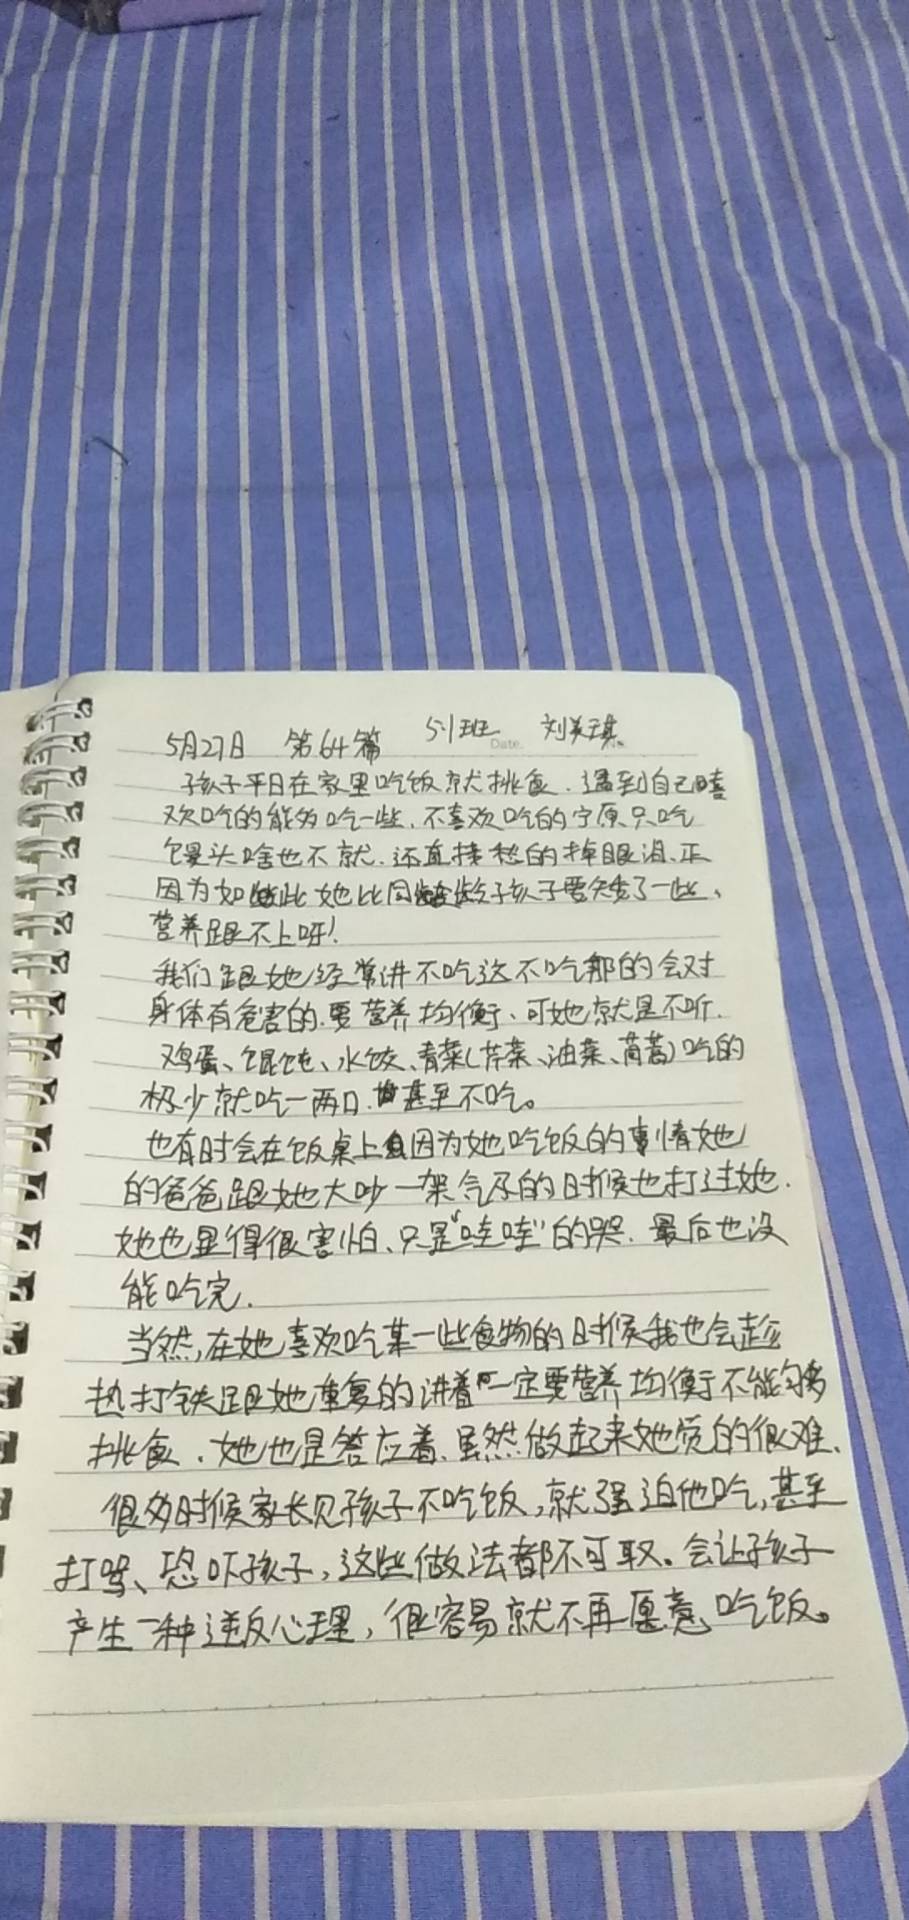 5月27日 第64篇 5.1班 刘美琪
Date.
孩子平日在家里吃饭就挑食.遇到自己喜
欢吃的能多吃一些.不喜欢吃的宁原只吃
馒头啥也不就.还直接愁的掉眼泪.正
因为如此她比同龄孩子要矮了一些、
营养跟不上呀!
我们跟她经常讲不吃这不吃那的会对
身体有危害的.要营养均衡、可她就是不听.
鸡蛋、馄饨、水饺、青菜(芹菜、油菜、茼蒿)吃的
极少就吃一两口.甚至不吃。
也有时会在饭桌上因为她吃饭的事情她
的爸爸跟她大吵一架气及的时候也打过她.
她也显得很害怕、只是“哇哇”的哭.最后也没
能吃完.
当然,在她喜欢吃某一些食物的时候我也会趁
热打铁跟她重复的讲着“一定要营养均衡不能够
挑食.她也是答应着.虽然做起来她觉的很难.
很多时候家长见孩子不吃饭,就强迫他吃,甚至
打骂、恐吓孩子,这些做法都不可取。会让孩子
产生一种逆反心理,很容易就不再愿意吃饭。